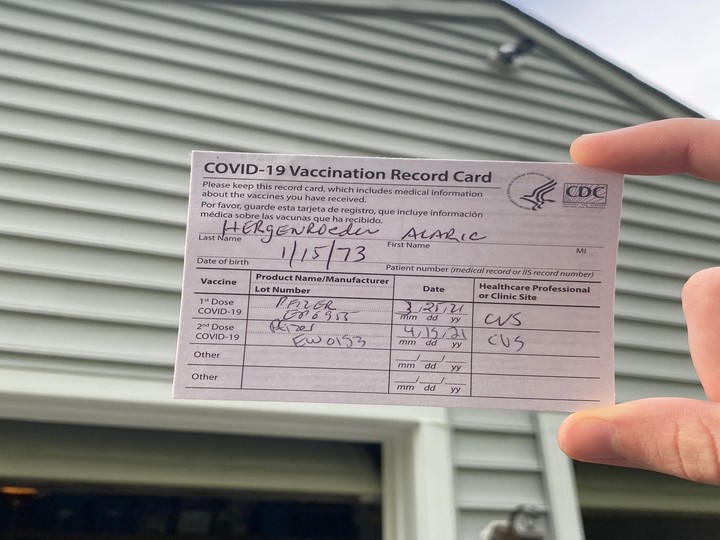 COVID-19 Vaccination Record Card
CDC
Please keep this record card, which includes medical information
about the vaccines you have received.
Por favor, guarde esta tarjeta de registro, que incluye información
médica sobre las vacunas que ha recibido.
HERgENROEdER ALARIC
Last Name First Name MI
1/15/73
Date of birth Patient number (medical record or IIS record number)
Vaccine Product Name/Manufacturer Date Healthcare Professional
Lot Number or Clinic Site
1st Dose PFIZER 3/25/21 CVS
COVID-19 mm dd yy
2nd Dose Pfizer 4/15/21 CVS
COVID-19 EW0153 mm dd yy
Other / /
mm dd yy
Other / /
mm dd yy